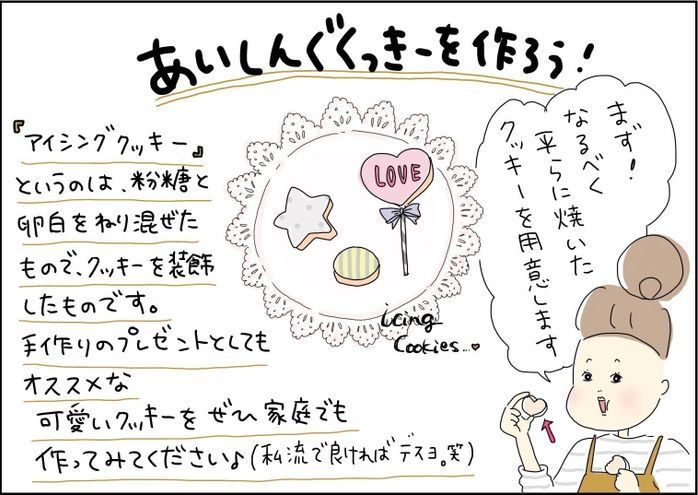 あいしんぐくっきーを作ろう!
『アイシングクッキー』
というのは、粉糖と
卵白をねり混ぜた
もので、クッキーを装飾
したものです。
手作りのプレゼントとしても
オススメな
可愛いクッキーを ぜひ 家庭でも
作ってみてください♪(私流で良ければデスヨ。笑)
LOVE
icing
Cookies...♥
まず!
なるべく
平らに焼いた
クッキーを用意します